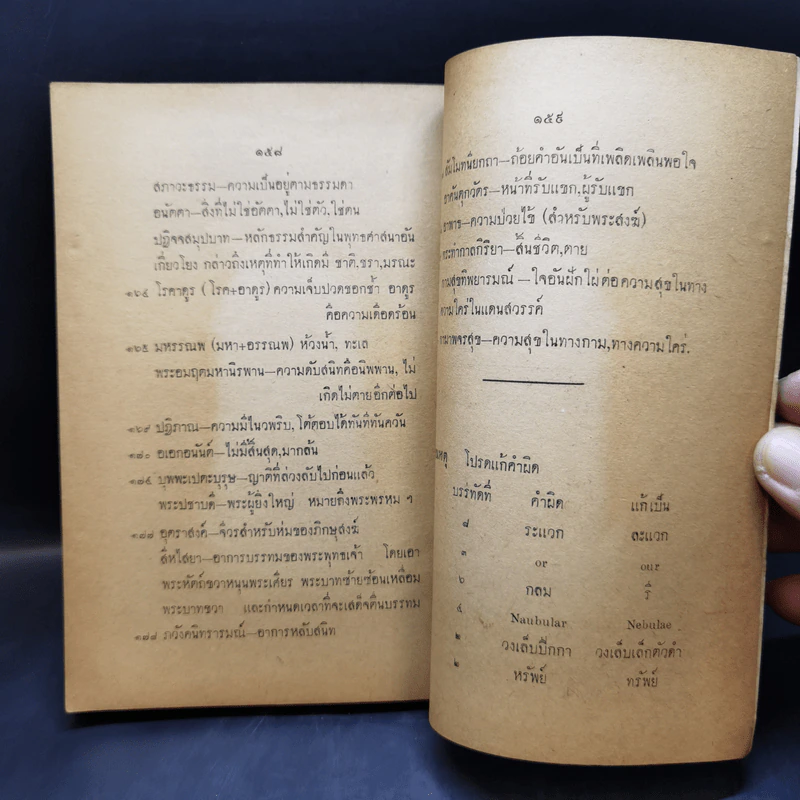 ๑๕๘
สภาวะธรรม—ความเป็นอยู่ตามธรรมดา
อนัตตา—สิ่งที่ไม่ใช่อัตตา,ไม่ใช่ตัว,ใช่ตน
ปฏิจจสมุปบาท—หลักธรรมสำคัญในพุทธศาสนาอัน
เกี่ยวโยง กล่าวถึงเหตุที่ทำให้เกิดมี ชาติ,ชรา,มรณะ
๑๖๔ โรคาดูร (โรค+อาดูร) ความเจ็บปวดชอกช้ำ อาดูร
คือความเดือดร้อน
๑๖๕ มหรรณพ (มหา+อรรณพ) ห้วงน้ำ, ทะเล
พระอมฤตมหานิรพาน—ความดับสนิทคือนิพพาน, ไม่
เกิดไม่ตายอีกต่อไป
๑๖๙ ปฏิภาณ—ความมีไหวพริบ, โต้ตอบได้ทันทีทันควัน
๑๘๐ อเอกอนันต์—ไม่มีสิ้นสุด,มากล้น
บุพพะเปตะบุรุษ—ญาติที่ล่วงลับไปก่อนแล้ว
พระปชาบดี—พระผู้ยิ่งใหญ่ หมายถึงพระพรหม ฯ
๑๘๗ อุตราสงค์—จีวรสำหรับห่มของภิกษุสงฆ์
สีหไสยา—อาการบรรทมของพระพุทธเจ้า โดยเอา
พระหัตถ์ขวาหนุนพระเศียร พระบาทซ้ายซ้อนเหลื่อม
พระบาทขวา และกำหนดเวลาที่จะเสด็จตื่นบรรทม
๑๘๘ ภวังคนิทรารมณ์—อาการหลับสนิท
๑๕๙
สัมโมทนียกถา—ถ้อยคำอันเป็นที่เพลิดเพลินพอใจ
อาคันตุกวัตร—หน้าที่รับแขก,ผู้รับแขก
อาพาธ—ความป่วยไข้ (สำหรับพระสงฆ์)
กระทำกาลกิริยา—สิ้นชีวิต,ตาย
กามสุขทิพยารมณ์—ใจอันฝักใฝ่ต่อความสุขในทาง
ความใคร่ในแดนสวรรค์
กามาพจรสุข—ความสุขในทางกาม,ทางความใคร่.
เหตุ โปรดแก้คำผิด
บรรทัดที่ คำผิด แก้เป็น
๘ ระแวก ละแวก
๓ or our
๖ กลม รี
๕ Naubular Nebulae
๒ วงเล็บปีกกา วงเล็บเล็กตัวดำ
๒ หรัพย์ ทรัพย์